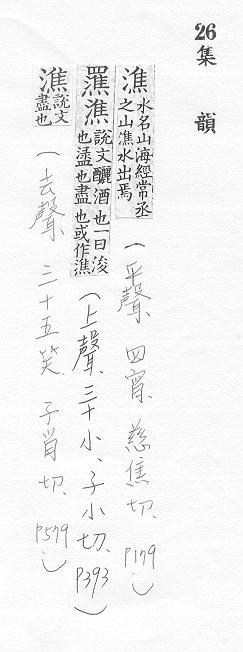 26集韻
潐水名山海經常烝之山潐水出焉(平聲、四宵、慈焦切、P179.)
潐說文釃酒也一曰浚也㴃也盡也或作潐(上聲、三十小、子小切、P393)
潐說文盡也(去聲、三十五笑、子肖切、P579.)